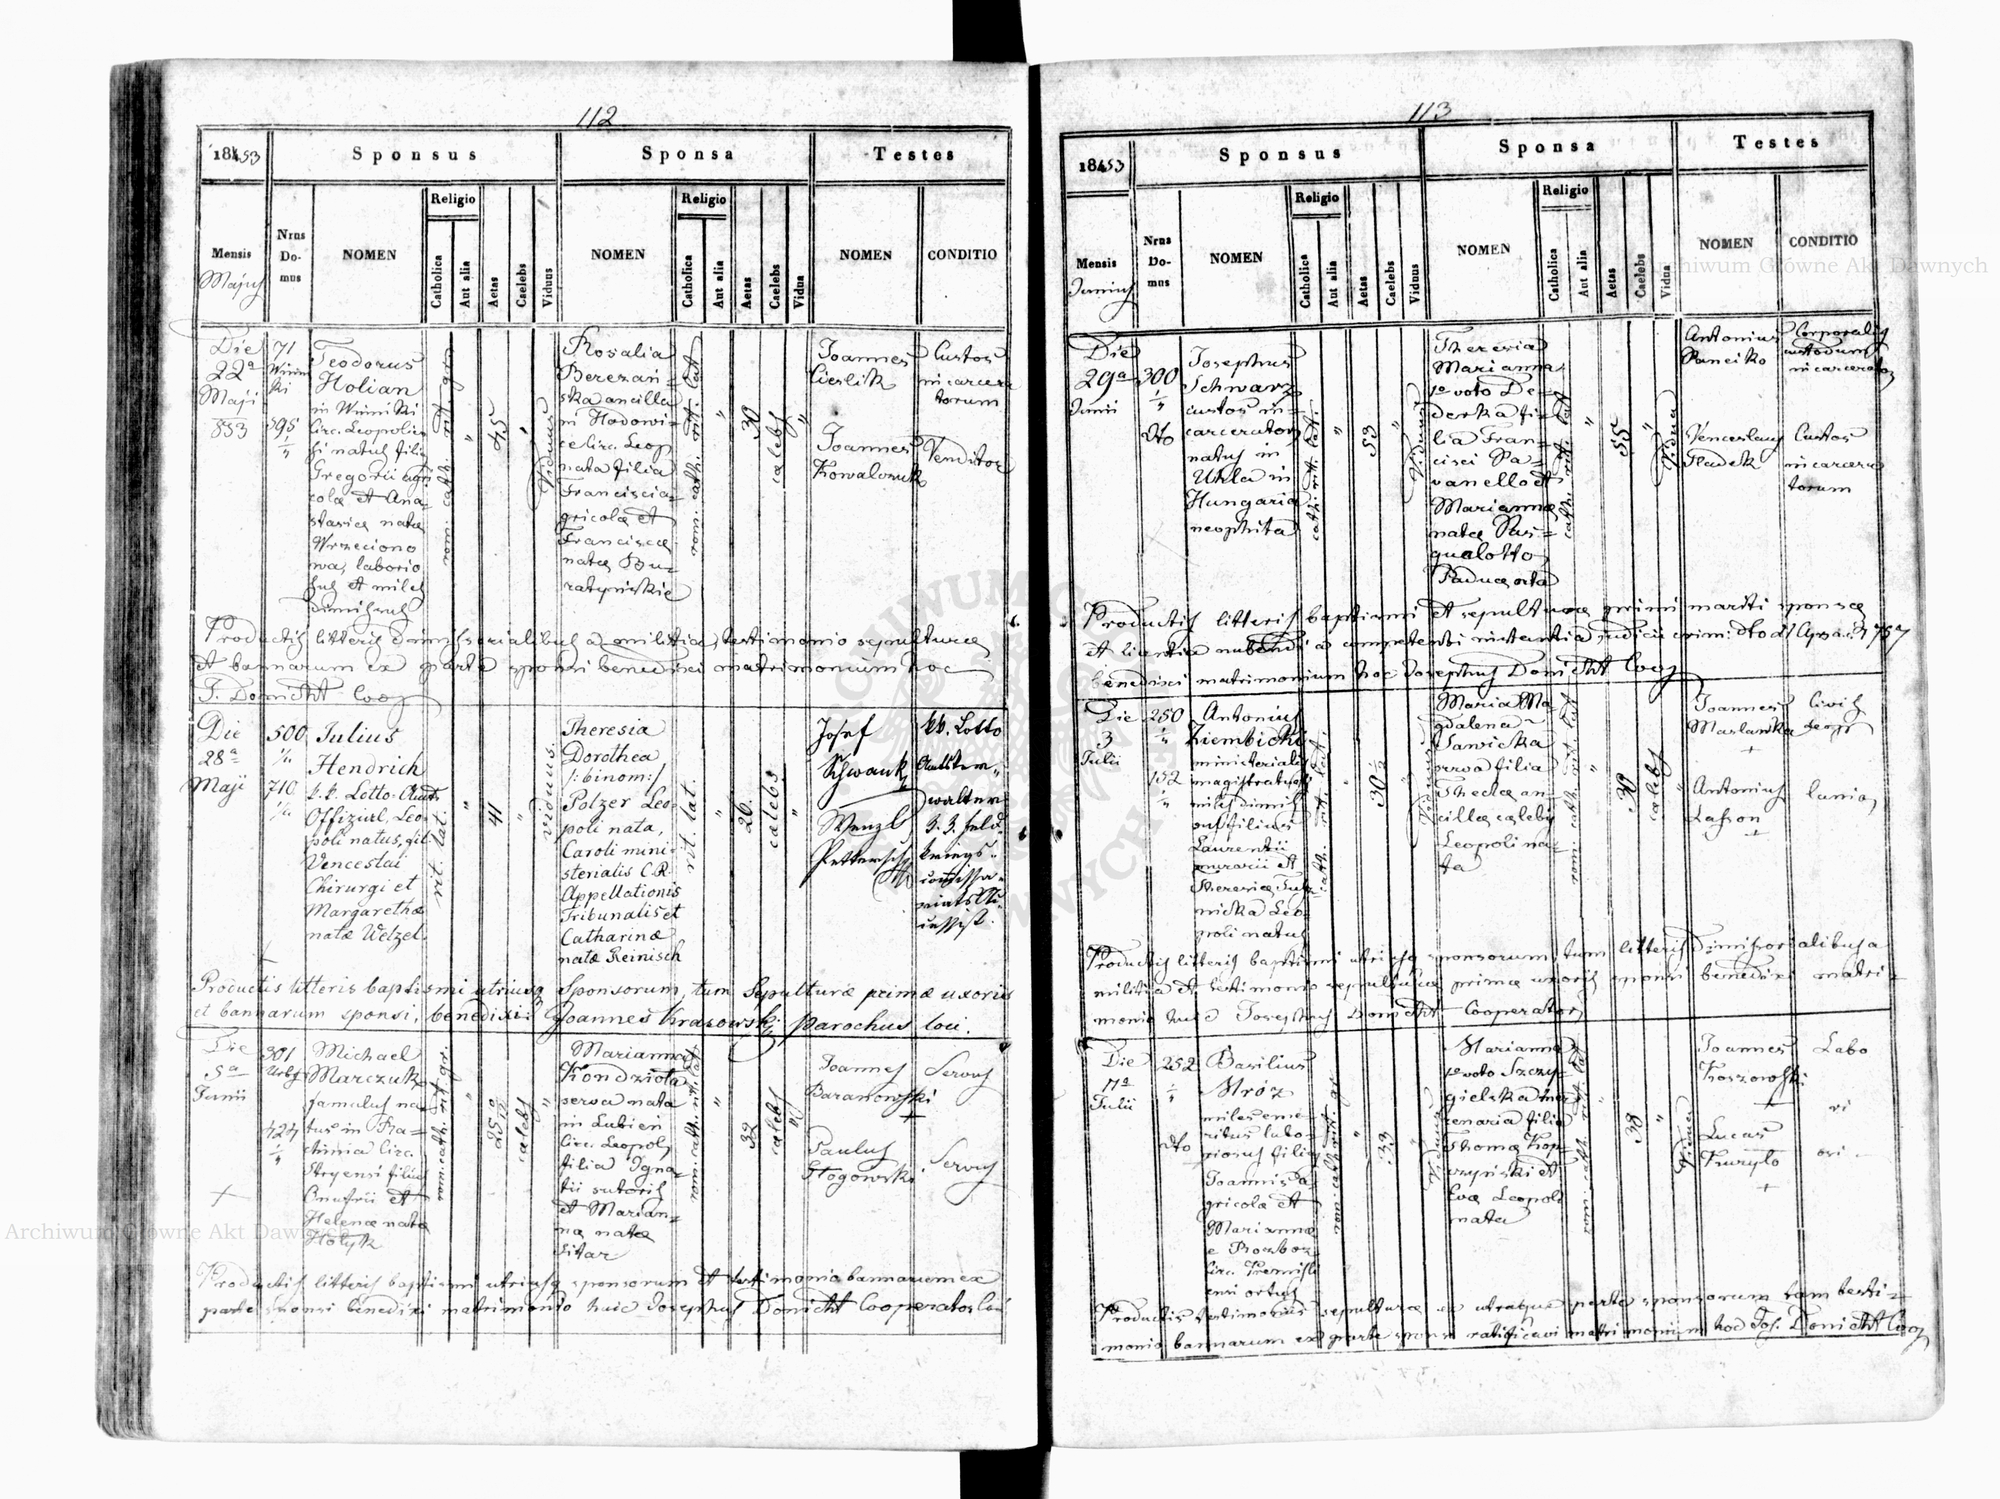 112
1853
Sponsus
Sponsa
Testes
Mensis
Majus
Nrus
Do-
mus
NOMEN
Religio
Catholica
Aut alia
Aetas
Caelebs
Viduus
NOMEN
Religio
Catholica
Aut alia
Aetas
Caelebs
Vidua
NOMEN
CONDITIO
Die
22a
Maji
853
71
Winni
ki
595
1/4
Teodorus
Holian
in Winniki
Circ. Leopolien
natus filius
Gregorii agri
colæ et Ana
stasiæ natæ
Wrzeciono
wa, laborio
sus et miles
dimissus
rom. cath. rit. gr.
"
45
"
Viduus
Rosalia
Berezań=
ska ancilla
in Hodowi=
ce Circ. Leop
nata filia
Francisci a=
gricolæ et
Franciscæ
natæ Bu=
ratyńskie
rom. cath. rit. lat
"
30
caelebs
"
Joannes
Cieslik
Custos
incarcera
torum
Joannes
Kowalczuk
Venditor
Productis litteris dimissorialibus a militia, testimonio sepulturæ
et bannarum ex parte sponsi benedixi matrimonium hoc
J. Donicht Coop
Die
28a
Maji
500
1/4
710
1/4
Julius
Hendrich
k.k. Lotto-Amts
Offizial, Leo-
poli natus, fil.
Venceslai
Chirurgi et
Margarethæ
natæ Wetzel.
rit. lat.
"
41
"
viduus.
Theresia
Dorothea
/: binom:/
Polzer Leo-
poli nata,
Caroli mini-
sterialis C.R.
Appellationis
Tribunalis et
Catharinæ
natæ Reinisch
rit. lat.
"
26.
caelebs
"
Josef
Schwank
kk. Lotto
Amtsver-
walter
Wenzl
k. k. Feld-
kriegs-
Productis litteris baptismi utriusq sponsorum, tum sepulturæ primæ uxoris
et bannarum sponsi, benedixi: Joannes Krasowski parochus loci.
Die
5a
Junii
301
Urbs
424
1/4
Michael
Marczuk
famulus na
tus in Ra=
Circ.
Stryensi filius
Onufrii et
Helenæ natæ
Holyk
rom. cath. rit. gr.
"
25 1/2
caelebs
"
Marianna
Kondziola
serva nata
in Lubien
Circ. Leopol
filia Igna=
tii sutoris
et Marian=
næ natæ
Sitar
rom. cath. rit. lat
"
32
caelebs
"
Joannes
Baranowski
+
Servus
Paulus
Głogowski
Servus
Productis litteris baptismi utriusq sponsorum et testimonio bannarum ex
parte sponsi benedixi matrimonio huic Josephus Donicht Cooperator loci
113
1853
Sponsus
Sponsa
Testes
Mensis
Junius
Nrus
Do-
mus
NOMEN
Religio
Catholica
Aut alia
Aetas
Caelebs
Viduus
NOMEN
Religio
Catholica
Aut alia
Aetas
Caelebs
Vidua
NOMEN
CONDITIO
Die
29a
Junii
300
1/4
dto
Josephus
Schwarz
custos in=
carceratorum
natus in
Uhla in
Hungaria
neophita
cath. rit. lat.
"
53
"
Viduus
Theresia
Marianna
1o voto De=
derka fi=
lia Fran=
cisci Pa=
vanello et
Mariannæ
natæ Pas=
qualotto
Paduæ orta
cath. rit. lat
"
55
"
Vidua
Antonius
Panciko
Corporalis
custodum
incarcerator
Venceslaus
Hadek
Custos
incarcera
torum
Productis litteris baptismi et sepulturæ primi mariti sponsæ
et licentia nubendi a competenti instantia judicii crim: dto
benedixi matrimonium hoc Josephus Donicht Coop
Die
3
Julii
250
1/4
152
1/4
Antonius
Ziembicki
ministerialis
magistratus
miles dimis
sus filius
Laurentii
murarii et
Theresiæ
nicka Leo=
poli natus
cath. rit. lat.
"
30 1/2
"
Viduus
Maria Ma
gdalena
Sawicka
serva filia
Theclæ an=
cillæ cælebs
Leopoli na=
ta
rom. cath. rit. lat
"
30
caelebs
"
Joannes
Maslanka
+
Civis
Leopr
Antonius
Lason
+
lanio
Productis litteris baptismi utriusq sponsorum, tum litteris dimissorialibus a
militia et testimonio sepulturæ primæ uxoris sponsi benedixi matri=
monio huic Josephus Donicht Cooperator
Die
17a
Julii
252
1/4
dto
Basilius
Mróz
miles eme=
ritus labo=
riosus filius
Joannis a=
gricolæ et
Mariannæ
e Rozborz
Circ. Premisli
ensi ortus
rom. cath. rit. gr.
"
33
"
Viduus
Marianna
1o voto Szczy=
gielska mer
cenaria filia
Thomæ Kop
czyński et
Evæ Leopoli
nata
rom. cath. rit. lat.
"
38
"
Vidua
Joannes
Koszowski
+
Labo
ri
Lucas
Kuryło
+
osi
Productis testimoniis sepulturæ ex utraque parte sponsorum tam testi=
monio bannarum ex parte sponsi ratificavi matrimonium hoc Jos. Donicht Coop
Archiwum Główne Akt Dawnych
Archiwum Główne Akt Dawnych